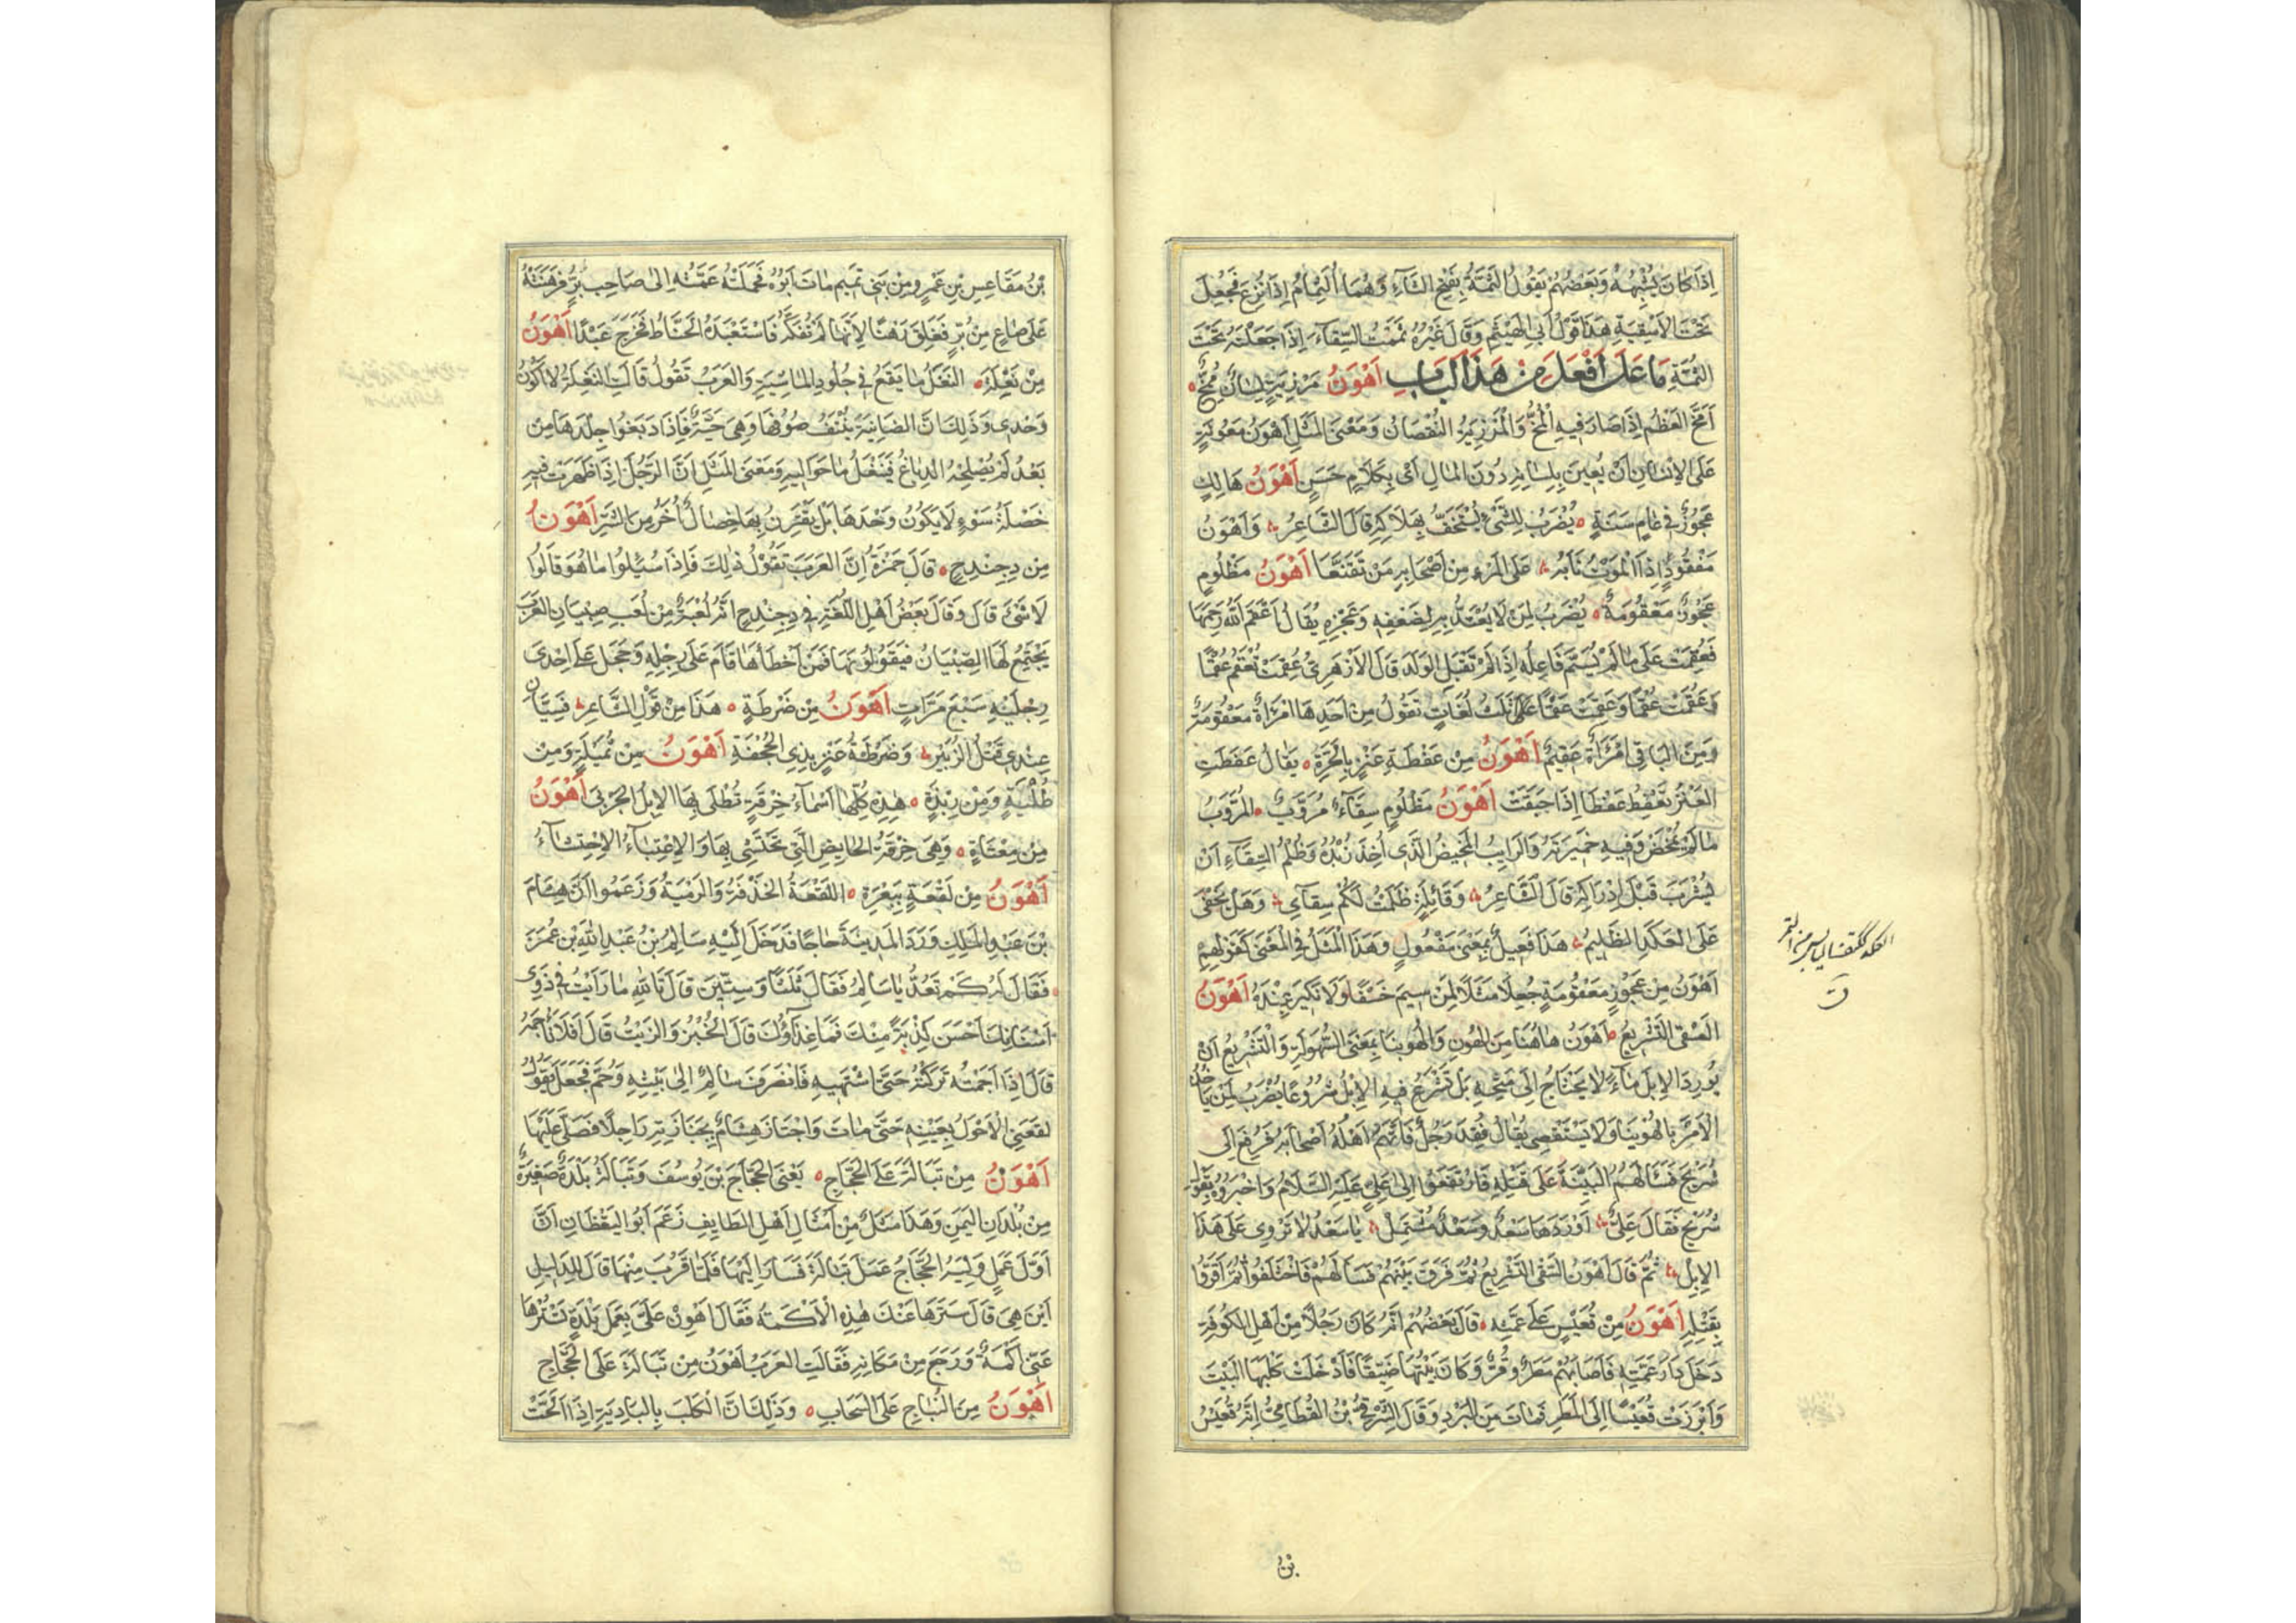 اِذَا كَانَ يُشْبِهُهُ وَبَعْضُهُمْ يَقُولُ الثَّمَّةُ بِفَتْحِ الثَّاءِ وَهُمَا الثُّمَامُ اِذَا نُزِعَ فَجُعِلَ
تَحْتَ الاَسْقِيَةِ هَذَا قَوْلُ اَبِي الْهَيْثَمِ وَقَالَ غَيْرُهُ ثَمَمْتُ السِّقَاءَ اِذَا جَعَلْتَهُ تَحْتَ
الثُّمَّةِ مَا عَلَى اَفْعَلَ مِنْ هَذَا الْبَابِ اَهْوَنُ مَرْزِئَةٍ لِسَانٌ مُمِخٌّ
اَمَخَّ العَظْمُ اِذَا صَارَ فِيهِ الْمُخُّ وَالْمَرْزِئَةُ النُّقْصَانُ وَمَعْنَى المَثَلِ اَهْوَنُ مَعُونَةٍ
عَلَى الاِنْسَانِ اَنْ يُعِينَ بِلِسَانِهِ دُونَ المَالِ اَىْ بِكَلَامٍ حَسَنٍ اَهْوَنُ هَالِكٍ
عَجُوزٌ فِى عَامٍ سَنَةٍ يُضْرَبُ لِلشَّىْءِ يُسْتَخَفُّ بِهَلَاكِهِ قَالَ الشَّاعِرُ وَاَهْوَنُ
مَفْقُودٍ اِذَا الْمَوْتُ نَابَهُ عَلَى المَرْءِ مِنْ اَصْحَابِهِ مَنْ تَقَنَّعَا اَهْوَنُ مَظْلُومٍ
عَجُوزٌ مَعْقُومَةٌ يُضْرَبُ لِمَنْ لَا يُعْتَدُّ بِهِ لِضَعْفِهِ وَعَجْزِهِ يُقَالُ اَعْقَمَ اللّٰهُ رَحِمَهَا
فَعُقِمَتْ عَلَى مَا لَمْ يُسَمَّ فَاعِلُهُ اِذَا لَمْ تَقْبَلِ الوَلَدَ قَالَ الاَزْهَرِىُّ عُقِمَتْ تُعْقَمُ عُقْمًا
وَعَقُمَتْ عُقْمًا وَعَقِمَتْ عَقَمًا عَلَى ثَلَثِ لُغَاتٍ تَقُولُ مِنْ اَحَدِهَا امْرَاَةٌ مَعْقُومَةٌ
وَمِنَ البَاقِى امْرَاَةٌ عَقِيمٌ اَهْوَنُ مِنْ عَفْطَةِ عَنْزٍ بِالْحَرَّةِ يُقَالُ عَفَطَتِ
العَنْزُ تَعْفِطُ عَفْطًا اِذَا حَبَقَتْ اَهْوَنُ مَظْلُومٍ سِقَاءٌ مُرَوَّبٌ المُرَوَّبُ
مَا لَمْ يُمْخَضْ وَفِيهِ خَمِيرَتُهُ وَالرَّايِبُ المَخِيضُ الَّذِى اُخِذَ زُبْدُهُ وَظُلْمُ السِّقَاءِ اَنْ
يُشْرَبَ قَبْلَ اِدْرَاكِهِ قَالَ الشَّاعِرُ وَقَائِلَةٍ ظَلَمْتُ لَكُمْ سِقَاىِ وَهَلْ يَخْفَى
عَلَى العَكَدِ الظَّلِيمُ هَذَا فَعِيلٌ بِمَعْنَى مَفْعُولٍ وَهَذَا الْمَثَلُ فِى الْمَعْنَى كَقَوْلِهِمْ
اَهْوَنُ مِنْ عَجُوزٍ مَعْقُومَةٍ جُعِلَا مَثَلًا لِمَنْ سِيمَ خَسْفًا وَلَا نَكِيرَ عِنْدَهُ اَهْوَنُ
السَّقْىِ التَّشْرِيعُ اَهْوَنُ هَاهُنَا مِنَ الهَوْنِ وَالْهُوَيْنَا بِمَعْنَى السُّهُولَةِ وَالتَّشْرِيعُ اَنْ
يُورِدَ الاِبِلَ مَاءً لَا يَحْتَاجُ اِلَى مَتْحِهِ بَلْ تَشْرَعُ فِيهِ الاِبِلُ شُرُوعًا يُضْرَبُ لِمَنْ يَاْخُذُ
الاَمْرَ بِالْهُوَيْنَا وَلَا يَسْتَقْصِى يُقَالُ فُقِدَ رَجُلٌ فَاتَّهَمَ اَهْلُهُ اَصْحَابَهُ فَرُفِعَ اِلَى
شُرَيْحٍ فَسَاَلَهُمُ البَيِّنَةَ عَلَى قَتْلِهِ فَارْتَفَعُوا اِلَى عَلِىٍّ عَلَيْهِ السَّلَامُ وَاَخْبَرُوهُ بِقَوْلِ
شُرَيْحٍ فَقَالَ عَلِىٌّ اَوْرَدَهَا سَعْدٌ وَسَعْدٌ مُشْتَمِلْ يَا سَعْدُ لَا تَرْوِى عَلَى هَذَا
الاِبِلْ ثُمَّ قَالَ اَهْوَنُ السَّقْىِ التَّشْرِيعُ ثُمَّ فَرَّقَ بَيْنَهُمْ فَسَاَلَهُمْ فَاخْتَلَفُوا ثُمَّ اَقَرُّوا
بِقَتْلِهِ اَهْوَنُ مِنْ قُعَيْسٍ عَلَى عَمَّتِهِ قَالَ بَعْضُهُمْ اَنَّهُ كَانَ رَجُلًا مِنْ اَهْلِ الكُوفَةِ
دَخَلَ دَارَ عَمَّتِهِ فَاَصَابَهُمْ مَطَرٌ وَقُرٌّ وَكَانَ بَيْتُهَا ضَيِّقًا فَاَدْخَلَتْ كَلْبَهَا البَيْتَ
وَاَبْرَزَتْ قُعَيْسًا اِلَى المَطَرِ فَمَاتَ مِنَ البَرْدِ وَقَالَ الشَّرْقِىُّ بْنُ القُطَامِىِّ اِنَّهُ قُعَيْسُ
بْنُ
بْنُ مُقَاعِسِ بْنِ عَمْرٍو مِنْ بَنِى تَمِيمٍ مَاتَ اَبُوهُ فَحَمَلَتْهُ عَمَّتُهُ اِلَى صَاحِبِ بُرٍّ فَرَهَنَتْهُ
عَلَى صَاعٍ مِنْ بُرٍّ فَغَلِقَ رَهْنًا لِاَنَّهَا لَمْ تَفُكَّهُ فَاسْتَعْبَدَهُ الحَنَّاطُ فَخَرَجَ عَبْدًا اَهْوَنُ
مِنْ نَغْلَةٍ النَّغَلُ مَا يَقَعُ فِى جُلُودِ المَاشِيَةِ وَالعَرَبُ تَقُولُ قَالَتِ النَّغْلَةُ لَا اَكُونُ
وَحْدِى وَذَلِكَ اَنَّ الضَّايِنَةَ يُنْتَفُ صُوفُهَا وَهِىَ حَيَّةٌ فَاِذَا دَبَغُوا جِلْدَهَا مِنْ
بَعْدُ لَمْ يُصْلِحْهُ الدِّبَاغُ فَيَنْغَلُ مَا حَوَالَيْهِ وَمَعْنَى المَثَلِ اَنَّ الرَّجُلَ اِذَا ظَهَرَتْ فِيهِ
خَصْلَةُ سَوْءٍ لَا يَكُونُ وَحْدَهَا بَلْ يَقْتَرِنُ بِهَا خِصَالٌ اُخَرُ مِنَ الشَّرِّ اَهْوَنُ
مِنْ دِحِنْدِحٍ قَالَ حَمْزَةُ اِنَّ العَرَبَ تَقُولُ ذٰلِكَ فَاِذَا سُئِلُوا مَا هُوَ قَالُوا
لَا شَىْءَ قَالَ وَقَالَ بَعْضُ اَهْلِ اللُّغَةِ فِى دِحِنْدِحٍ اَنَّهُ لُعْبَةٌ مِنْ لُعَبِ صِبْيَانِ العَرَبِ
يَجْتَمِعُ لَهَا الصِّبْيَانُ فَيَقُولُونَهَا فَمَنْ اَخْطَاَهَا قَامَ عَلَى رِجْلِهِ وَحَجَلَ عَلَى اِحْدَى
رِجْلَيْهِ سَبْعَ مَرَّاتٍ اَهْوَنُ مِنْ ضَرْطَةٍ هَذَا مِنْ قَوْلِ الشَّاعِرِ فَسِيَّانِ
عِنْدِى قَتْلُ الزُّبَيْرِ وَضَرْطَةُ عَنْزٍ بِذِى الجُحْفَةِ اَهْوَنُ مِنْ ثَمَلَةٍ وَمِنْ
طُلْيَةٍ وَمِنْ رِبْذَةٍ هَذِهِ كُلُّهَا اَسْمَاءُ خِرْقَةٍ تُطْلَى بِهَا الاِبِلُ الجَرْبَى اَهْوَنُ
مِنْ مِعْبَاَةٍ وَهِىَ خِرْقَةُ الحَايِضِ الَّتِى تَحْتَشِى بِهَا وَالاِعْتِبَاءُ الاِحْتِشَاءُ
اَهْوَنُ مِنْ لَقْعَةٍ بِبَعْرَةٍ اللَّقْعَةُ الحَذْفَةُ وَالرَّمْيَةُ وَزَعَمُوا اَنَّ هِشَامَ
بْنَ عَبْدِ المَلِكِ وَرَدَ المَدِينَةَ حَاجًّا فَدَخَلَ اِلَيْهِ سَالِمُ بْنُ عَبْدِ اللّٰهِ بْنِ عُمَرَ
فَقَالَ لَهُ كَمْ تَعُدُّ يَا سَالِمُ فَقَالَ ثَلَثًا وَسِتِّينَ قَالَ تَاللّٰهِ مَا رَاَيْتُ فِى ذَوِى
اَسْنَانِكَ اَحْسَنَ كِدْنَةً مِنْكَ فَمَا غِذَاؤُكَ قَالَ الخُبْزُ وَالزَّيْتُ قَالَ اَفَلَا تَاْجَمُهُ
قَالَ اِذَا اَجَمْتُهُ تَرَكْتُهُ حَتَّى اَشْتَهِيهِ فَانْصَرَفَ سَالِمٌ اِلَى بَيْتِهِ وَحُمَّ فَجَعَلَ يَقُولُ
لَقَعَنِى الاَحْوَلُ بِعَيْنِهِ حَتَّى مَاتَ وَاجْتَازَ هِشَامٌ بِجَنَازَتِهِ رَاجِلًا فَصَلَّى عَلَيْهَا
اَهْوَنُ مِنْ تَبَالَةَ عَلَى الحَجَّاجِ يَعْنِى الحَجَّاجَ بْنَ يُوسُفَ وَتَبَالَةُ بَلْدَةٌ صَغِيرَةٌ
مِنْ بُلْدَانِ اليَمَنِ وَهَذَا مَثَلٌ مِنْ اَمْثَالِ اَهْلِ الطَّايِفِ زَعَمَ اَبُو اليَقْظَانِ اَنَّ
اَوَّلَ عَمَلٍ وَلِيَهُ الحَجَّاجُ عَمَلُ تَبَالَةَ فَسَارَ اِلَيْهَا فَلَمَّا قَرُبَ مِنْهَا قَالَ لِلدَّلِيلِ
اَيْنَ هِىَ قَالَ سَتَرَهَا عَنْكَ هَذِهِ الاَكَمَةُ فَقَالَ اَهْوِنْ عَلَىَّ بِعَمَلِ بَلْدَةٍ تَسْتُرُهَا
عَنِّى اَكَمَةٌ وَرَجَعَ مِنْ مَكَانِهِ فَقَالَتِ العَرَبُ اَهْوَنُ مِنْ تَبَالَةَ عَلَى الحَجَّاجِ
اَهْوَنُ مِنَ النُّبَاحِ عَلَى السَّحَابِ وَذَلِكَ اَنَّ الْكَلْبَ بِالبَادِيَةِ اِذَا اَلَحَّتْ